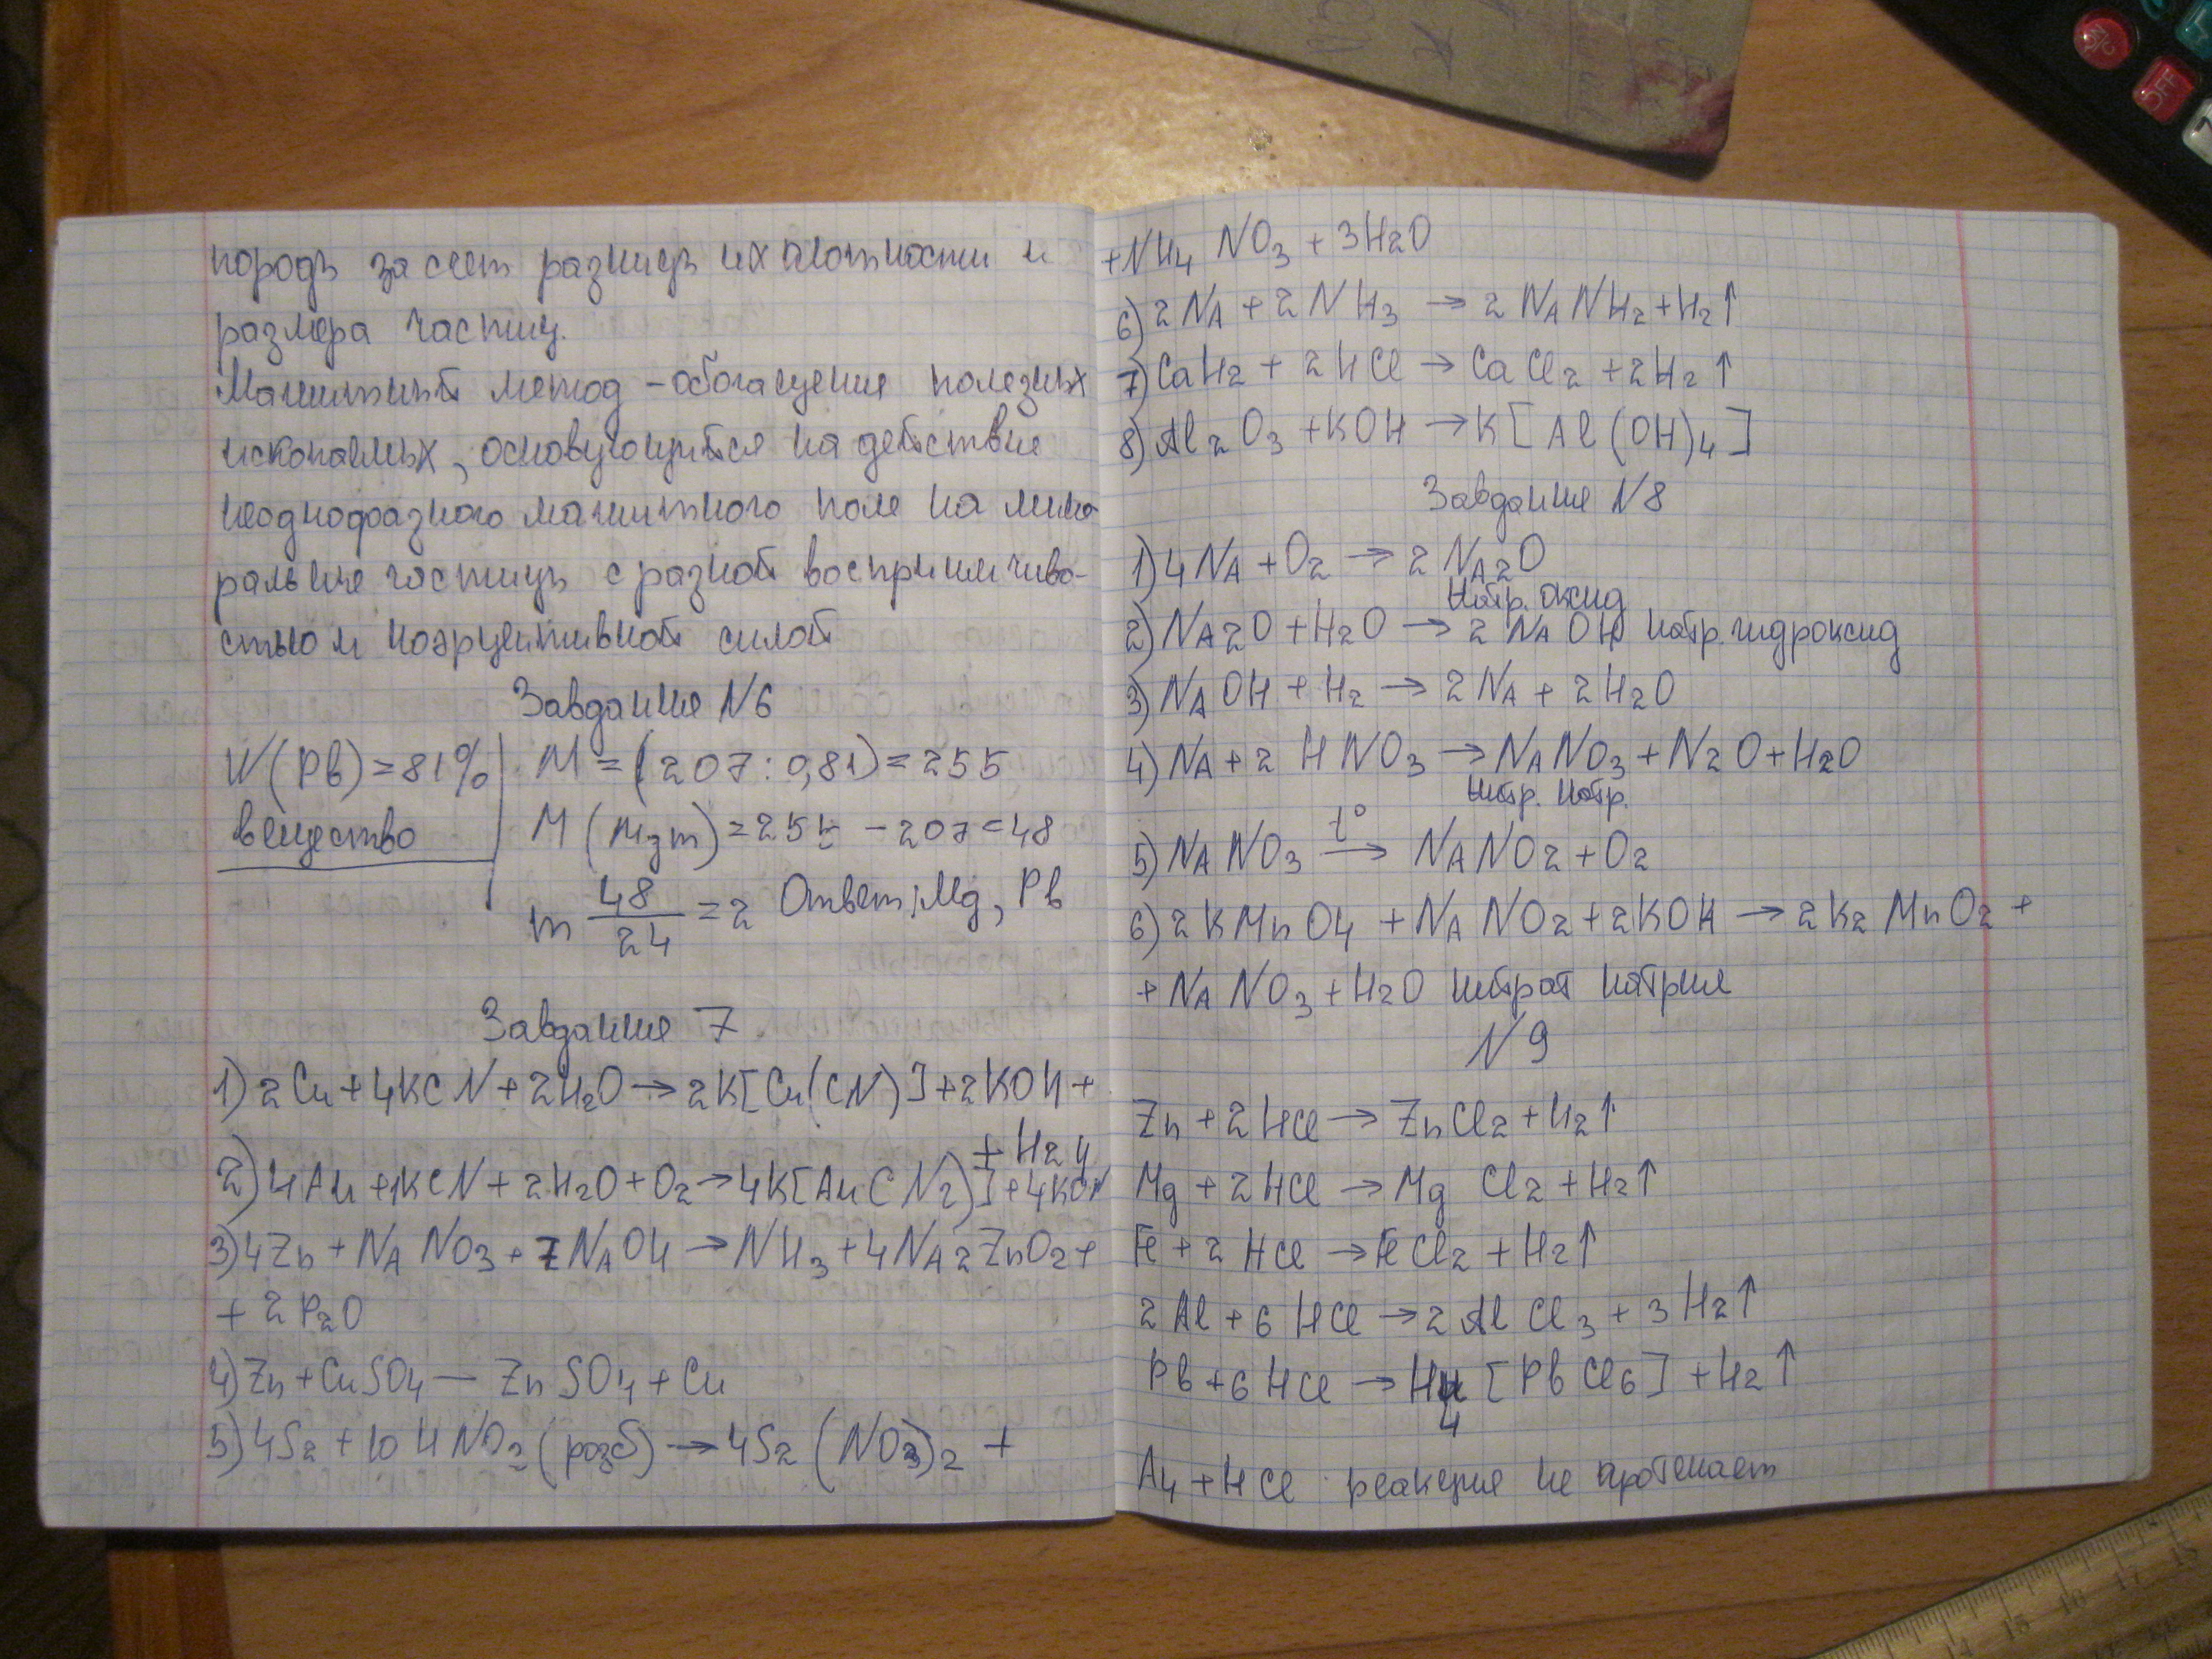 породъ за счет разницъ их плотности и
размера частиц.
Магнитный метод – обогащение полезных
ископаемых, основующийся на действие
неоднофазного магнитного поле на мине
ральние частицъ с разной восприимчиво-
стью и коэрцитивной силой
Завдание №6
W(Pb)=81%
M=(207:0,81)=255
вещество
M(Mgm)=255-207=48
m 48/24=2 Ответ: Mg, Pb
Завдание 7
1) 2Cu+4KCN+2H2O→2K[Cu(CN)]+2KOH+
+H2
2) 4Au+KCN+2H2O+O2→4K[Au(CN2)]+4KOH
3) 4Zn+NaNO3+7NaOH→NH3+4Na2ZnO2+
+2P2O
4) Zn+CuSO4—ZnSO4+Cu
5) 4S2+10HNO3(розб)→4S2(NO3)2+
+NH4NO3+3H2O
6) 2Na+2NH3→2NaNH2+H2↑
7) CaH2+2HCl→CaCl2+2H2↑
8) Al2O3+KOH→K[Al(OH)4]
Завдание №8
1) 4Na+O2→2Na2O
Натр. оксид
2) Na2O+H2O→2NaOH натр. гидроксид
3) NaOH+H2→2Na+2H2O
4) Na+2HNO3→NaNO3+N2O+H2O
Нитр. Натр.
5) NaNO3 t°→ NaNO2+O2
6) 2KMnO4+NaNO2+2KOH→2K2MnO2+
+NaNO3+H2O нитрат натрия
N9
Zn+2HCl→ZnCl2+H2↑
Mg+2HCl→MgCl2+H2↑
Fe+2HCl→FeCl2+H2↑
2Al+6HCl→2AlCl3+3H2↑
Pb+6HCl→H4[PbCl6]+H2↑
Au+HCl реакция не протекает
OFF